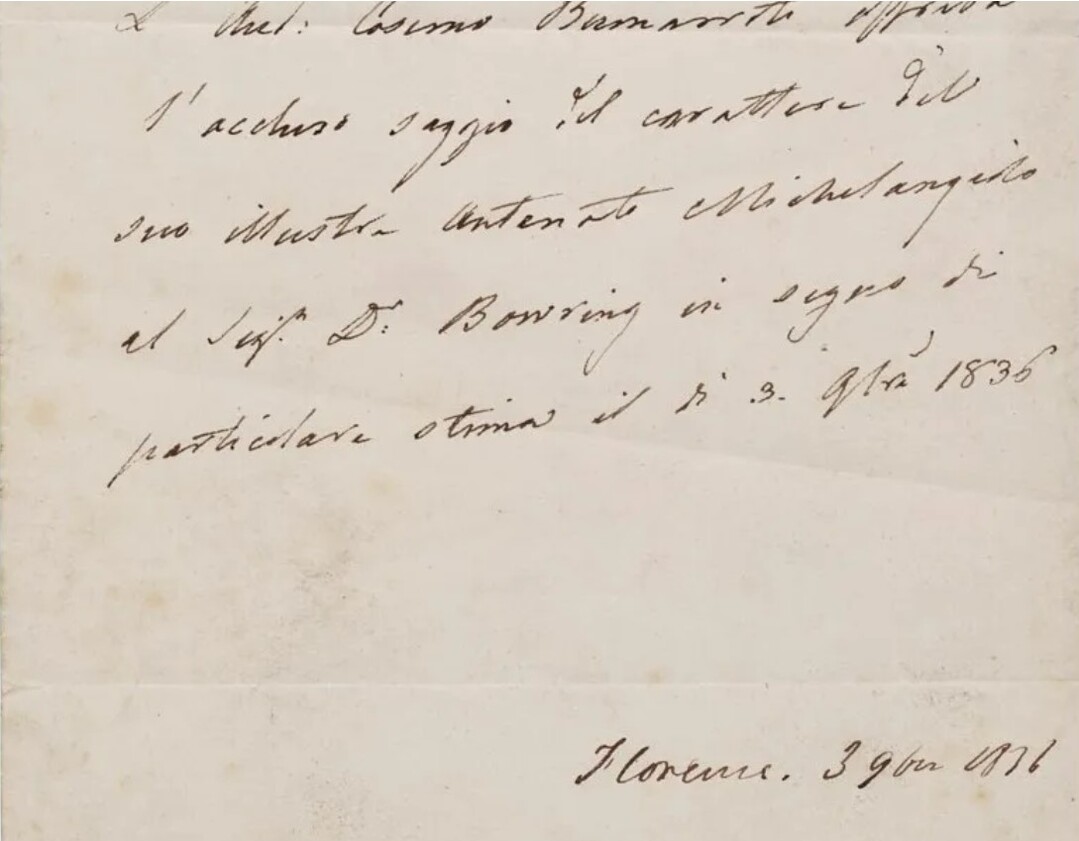 L' Aud: Cosimo Buonarroti offriva
l' accluso saggio del carattere del
suo illustre Antenato Michelangiolo
al Sigr. Dr. Bowring in segno di
particolare stima il dì 3. 9bre 1836
Florence. 3 9bre 1836